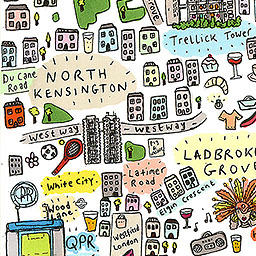 Trellick Tower
Du Cane
Road
NORTH
KENSINGTON
WESTWAY
WESTWAY
LADBROKE
GROVE
White City
Latimer
Road
Elgin Crescent
Wood
Lane
QPR
Westfield
London